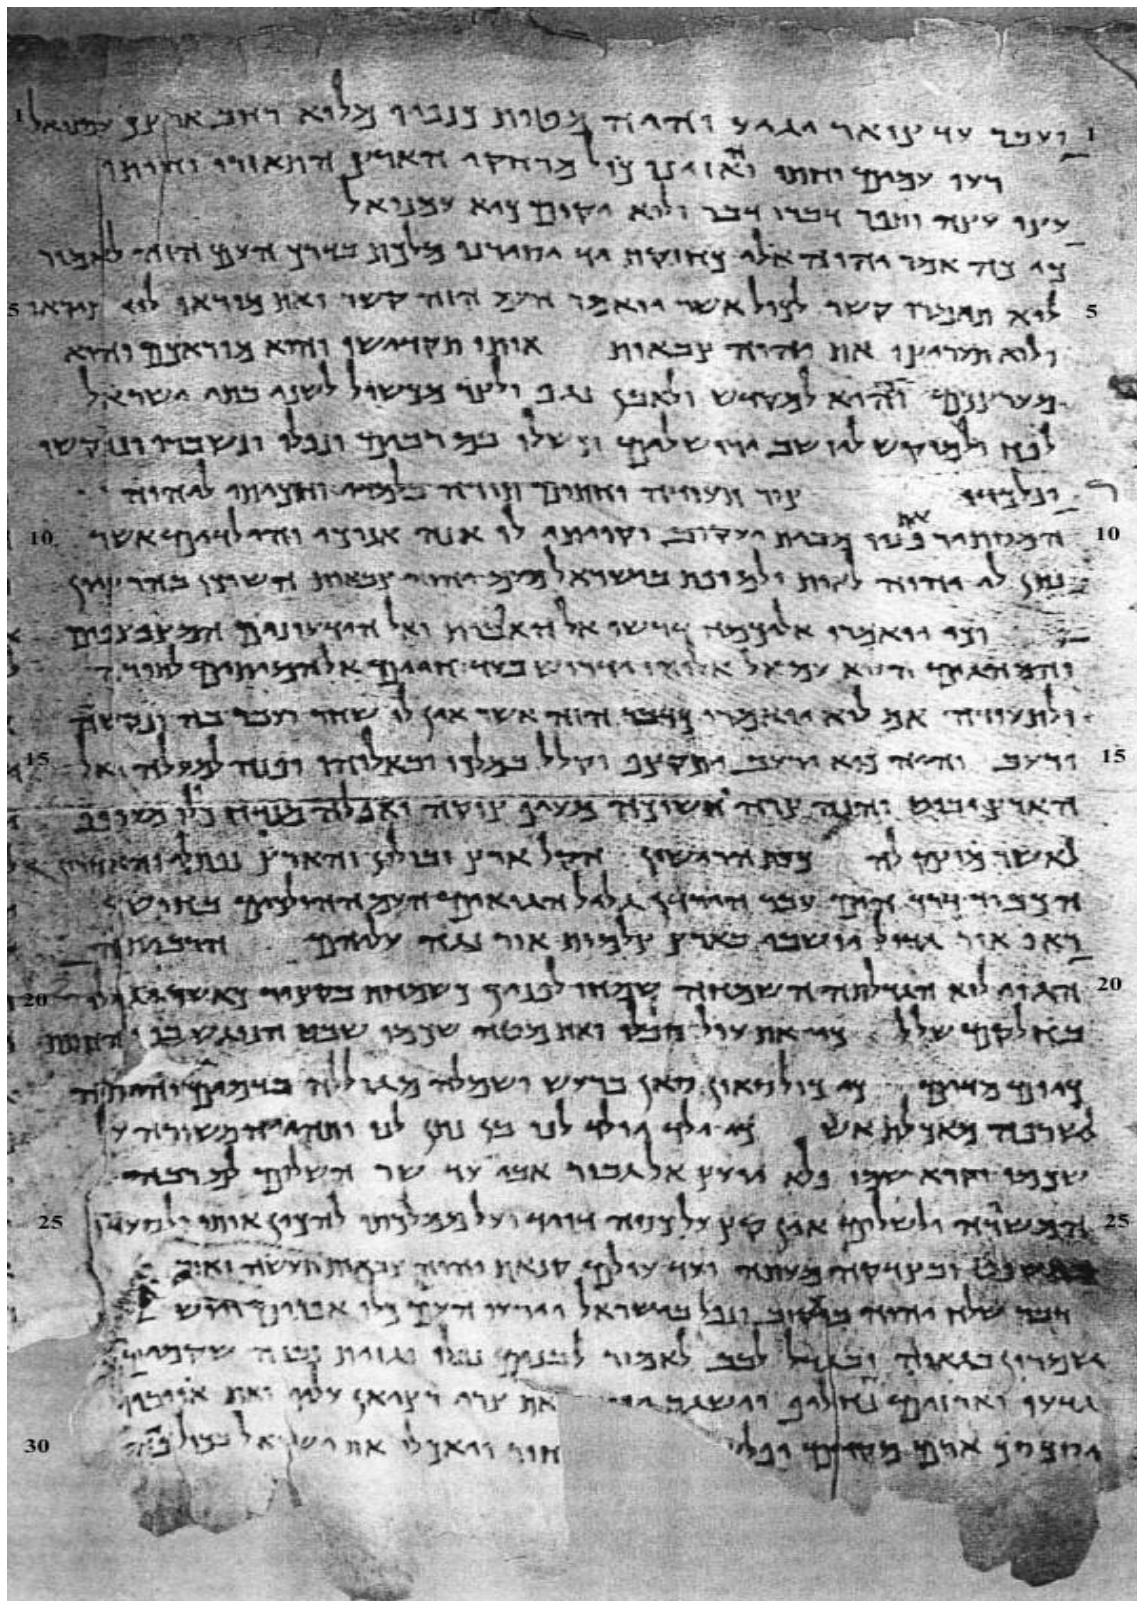 1 ועבר עד צואר יגיע והיה מטות כנפיו מלוא רחב ארצכ עמנואל 1
רעו עמים וחתו והאזינו כול מרחקי הארץ התאזרו וחותו
עוצו עצה ותפר דברו דבר ולוא יקום כיא עמנואל
כי כה אמר יהוה אלי כחזקת יד יסירני מלכת בדרך העם הזה לאמור
5 לוא תאמרו קשר לכול אשר יואמר העם הזה קשר ואת מוראו לוא תיראו 5
ולוא תעריצו את יהוה צבאות אותו תקדישו והוא מוראכם והוא
מעריצכם והיה למקדש ולאבן נגף ולצור מכשול לשני בתי ישראל
לפח ולמוקש ליושב ירושלים וכשלו בם רבים ונפלו ונשברו ונוקשו
ונלכדו צור תעודה וחתום תורה בלמדי וחכיתי ליהוה
10 המסתיר את פניו מבית יעקוב וקויתי לו הנה אנוכי והילדים אשר 10
נתן לי יהוה לאות ולמופת בישראל מעם יהוה צבאות השוכן בהר ציון
וכי יואמרו אליכמה דרשו אל האבות ואל הידעונים המצפצפים
והמהגים הלוא עם אל אלוהיו ידרוש בעד החיים אל המיתים לתורה
ולתעודה אם לוא יואמרו כדבר הזה אשר אין לו שחר ועבר בה ונקשה
15 ורעב והיה כיא ירעב יתקצף וקלל במלכו ובאלוהיו ופנה למעלה ואל 15
הארץ יביט והנה צרה וחשוכה מעיף צוקה ואפלה מנדח כי לוא מעופף
לאשר מוצק לה כעת הרישון הקל ארץ זבולון והארץ נפתלי והאחרון
הכביד דרך הים עבר הירדן גליל הגואים העם ההולכים בחושך
ראו אור גדול יושבי בארץ צלמות אור נגה עליהם הרביתה
20 הגוי לוא הגדלתה השמחה שמחו לפניך כשמחת בקציר כאשר יגילו 20
בחלקם שלל כי את עול סבלו ואת מטה שכמו שבט הנוגש בו החתת
כיום מדים כי כול סאון סאן ברעש ושמלה מגוללה בדמים והייתה
לשרפה מאכלת אש כי ילד יולד לנו בן נתן לנו ותהי המשורה על
שכמו וקרא שמו פלא יועץ אל גבור אבי עד שר השלום לםרבה
25 המשרה ולשלום אין קץ על כסה דויד ועל ממלכתו להכין אותו ולסעדו 25
במשפט ובצדקה מעתה ועד עולם קנאת יהוה צבאות תעשה זואת
דבר שלח יהוה ביעקוב ונפל בישראל וירעו העם כלו אפרים ויושב
שמרון בגאוה ובגדל לבב לאמור לבנים נפלו וגזית נבנה שקמים
גדעו וארזים נחליף וישגב יהוה את צרי רציאן עליו ואת אויביו
30 יסכסך ארם מקדם ופלשתים אחור ויאכלו את ישראל בכול פה